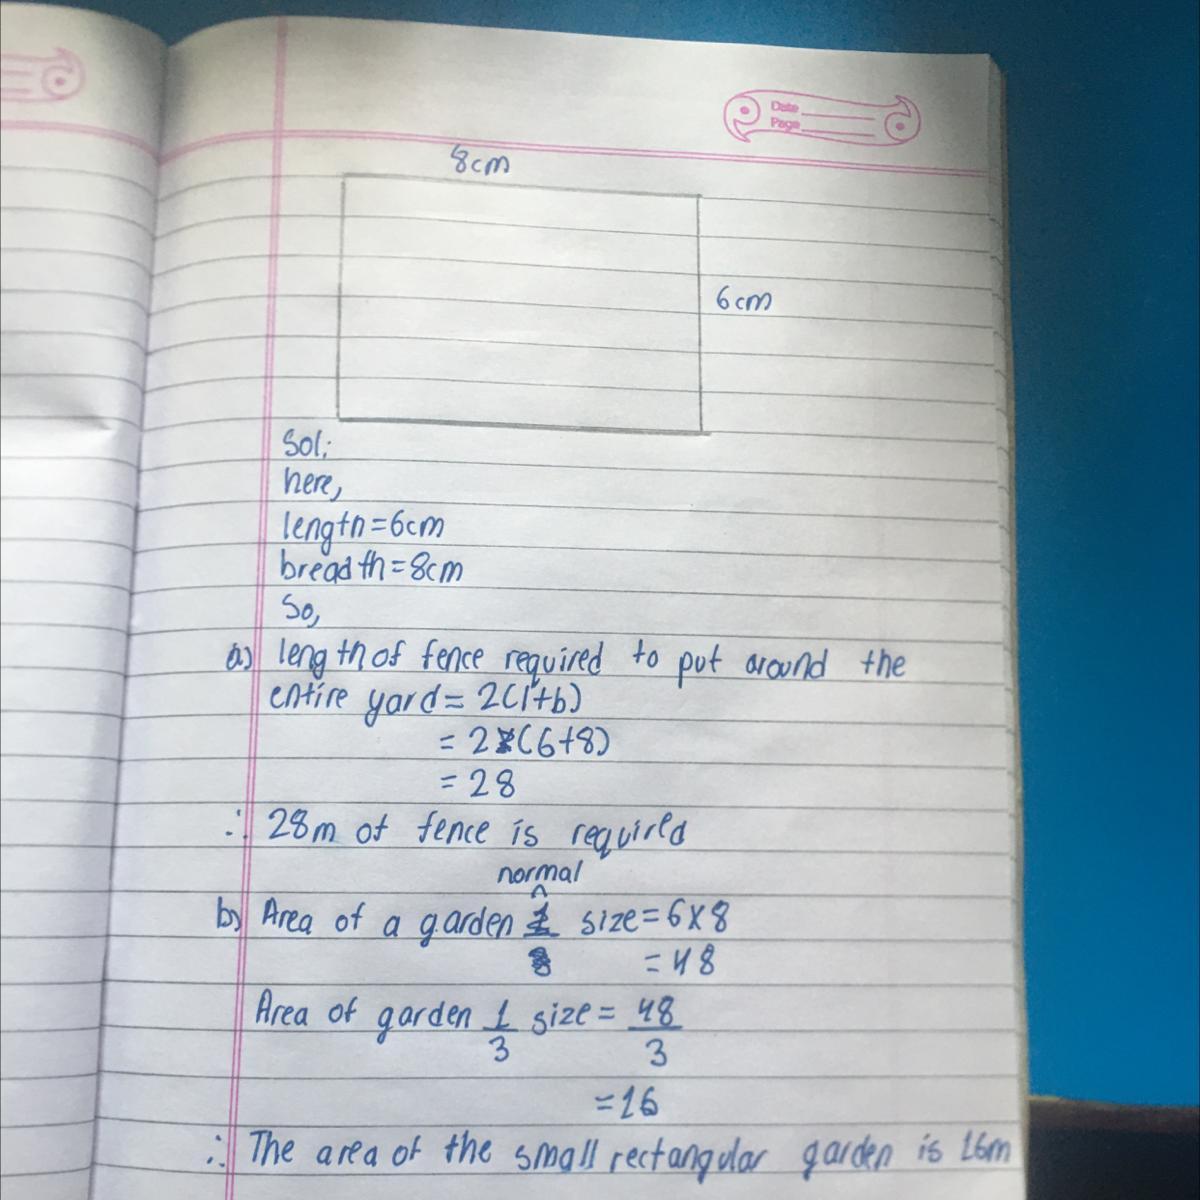 Date
Page
8cm
6cm
Sol;
here,
length=6cm
breadth=8cm
So,
a) length of fence required to put around the
entire yard=2(l+b)
=2*(6+8)
=28
∴ 28m of fence is required
normal
b) Area of a garden ^ size=6×8
=48
Area of garden 1/3 size=48/3
=16
∴ The area of the small rectangular garden is 16m